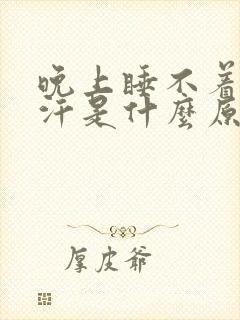 晚上睡不着
汗是什麼原
厚皮爷